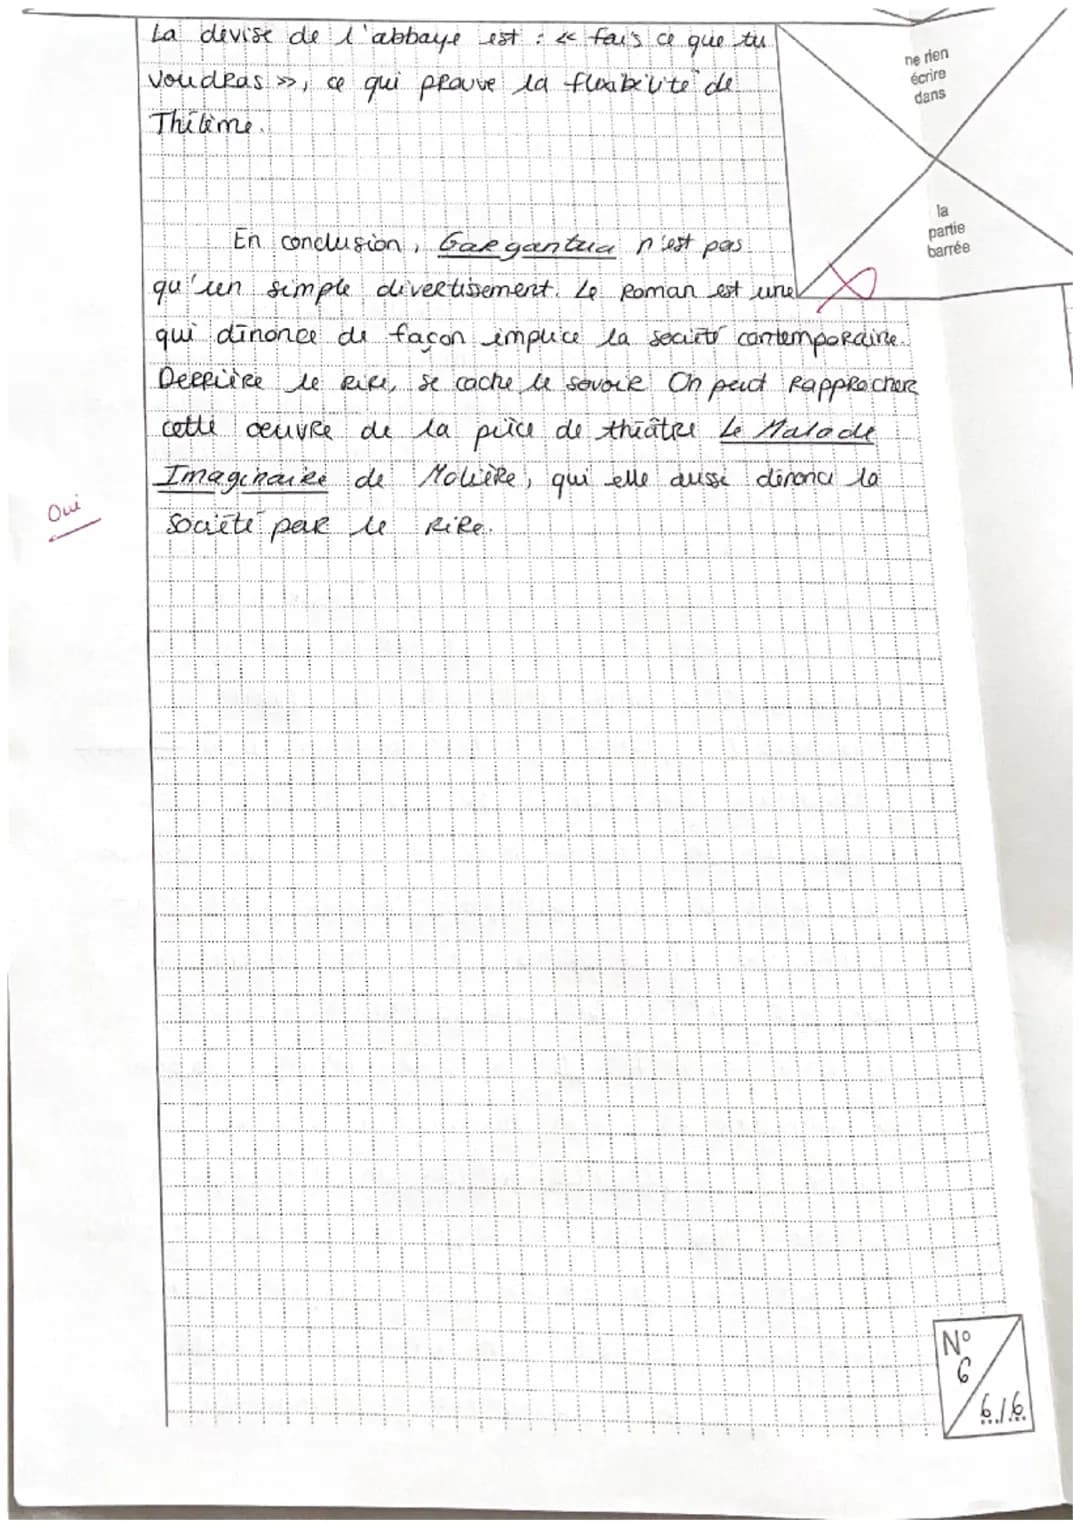 La devise de l'abbaye est : « fais ce que tu
voudras », ce qui prouve la flexibilité de
Thélème.
ne rien
écrire
dans
la
partie
barrée
En conclusion, Gargantua n'est pas
qu'un simple divertisement. Le roman est une
qui dénonce de façon implice la société contemporaine.
Derrière le rire, se cache le savoir On peut rapprocher
cette œuvre de la pièce de théâtre Le Malade
Imaginaire de Molière, qui elle aussi dénonce la
société par le rire.
Oui
N°
6
6/6